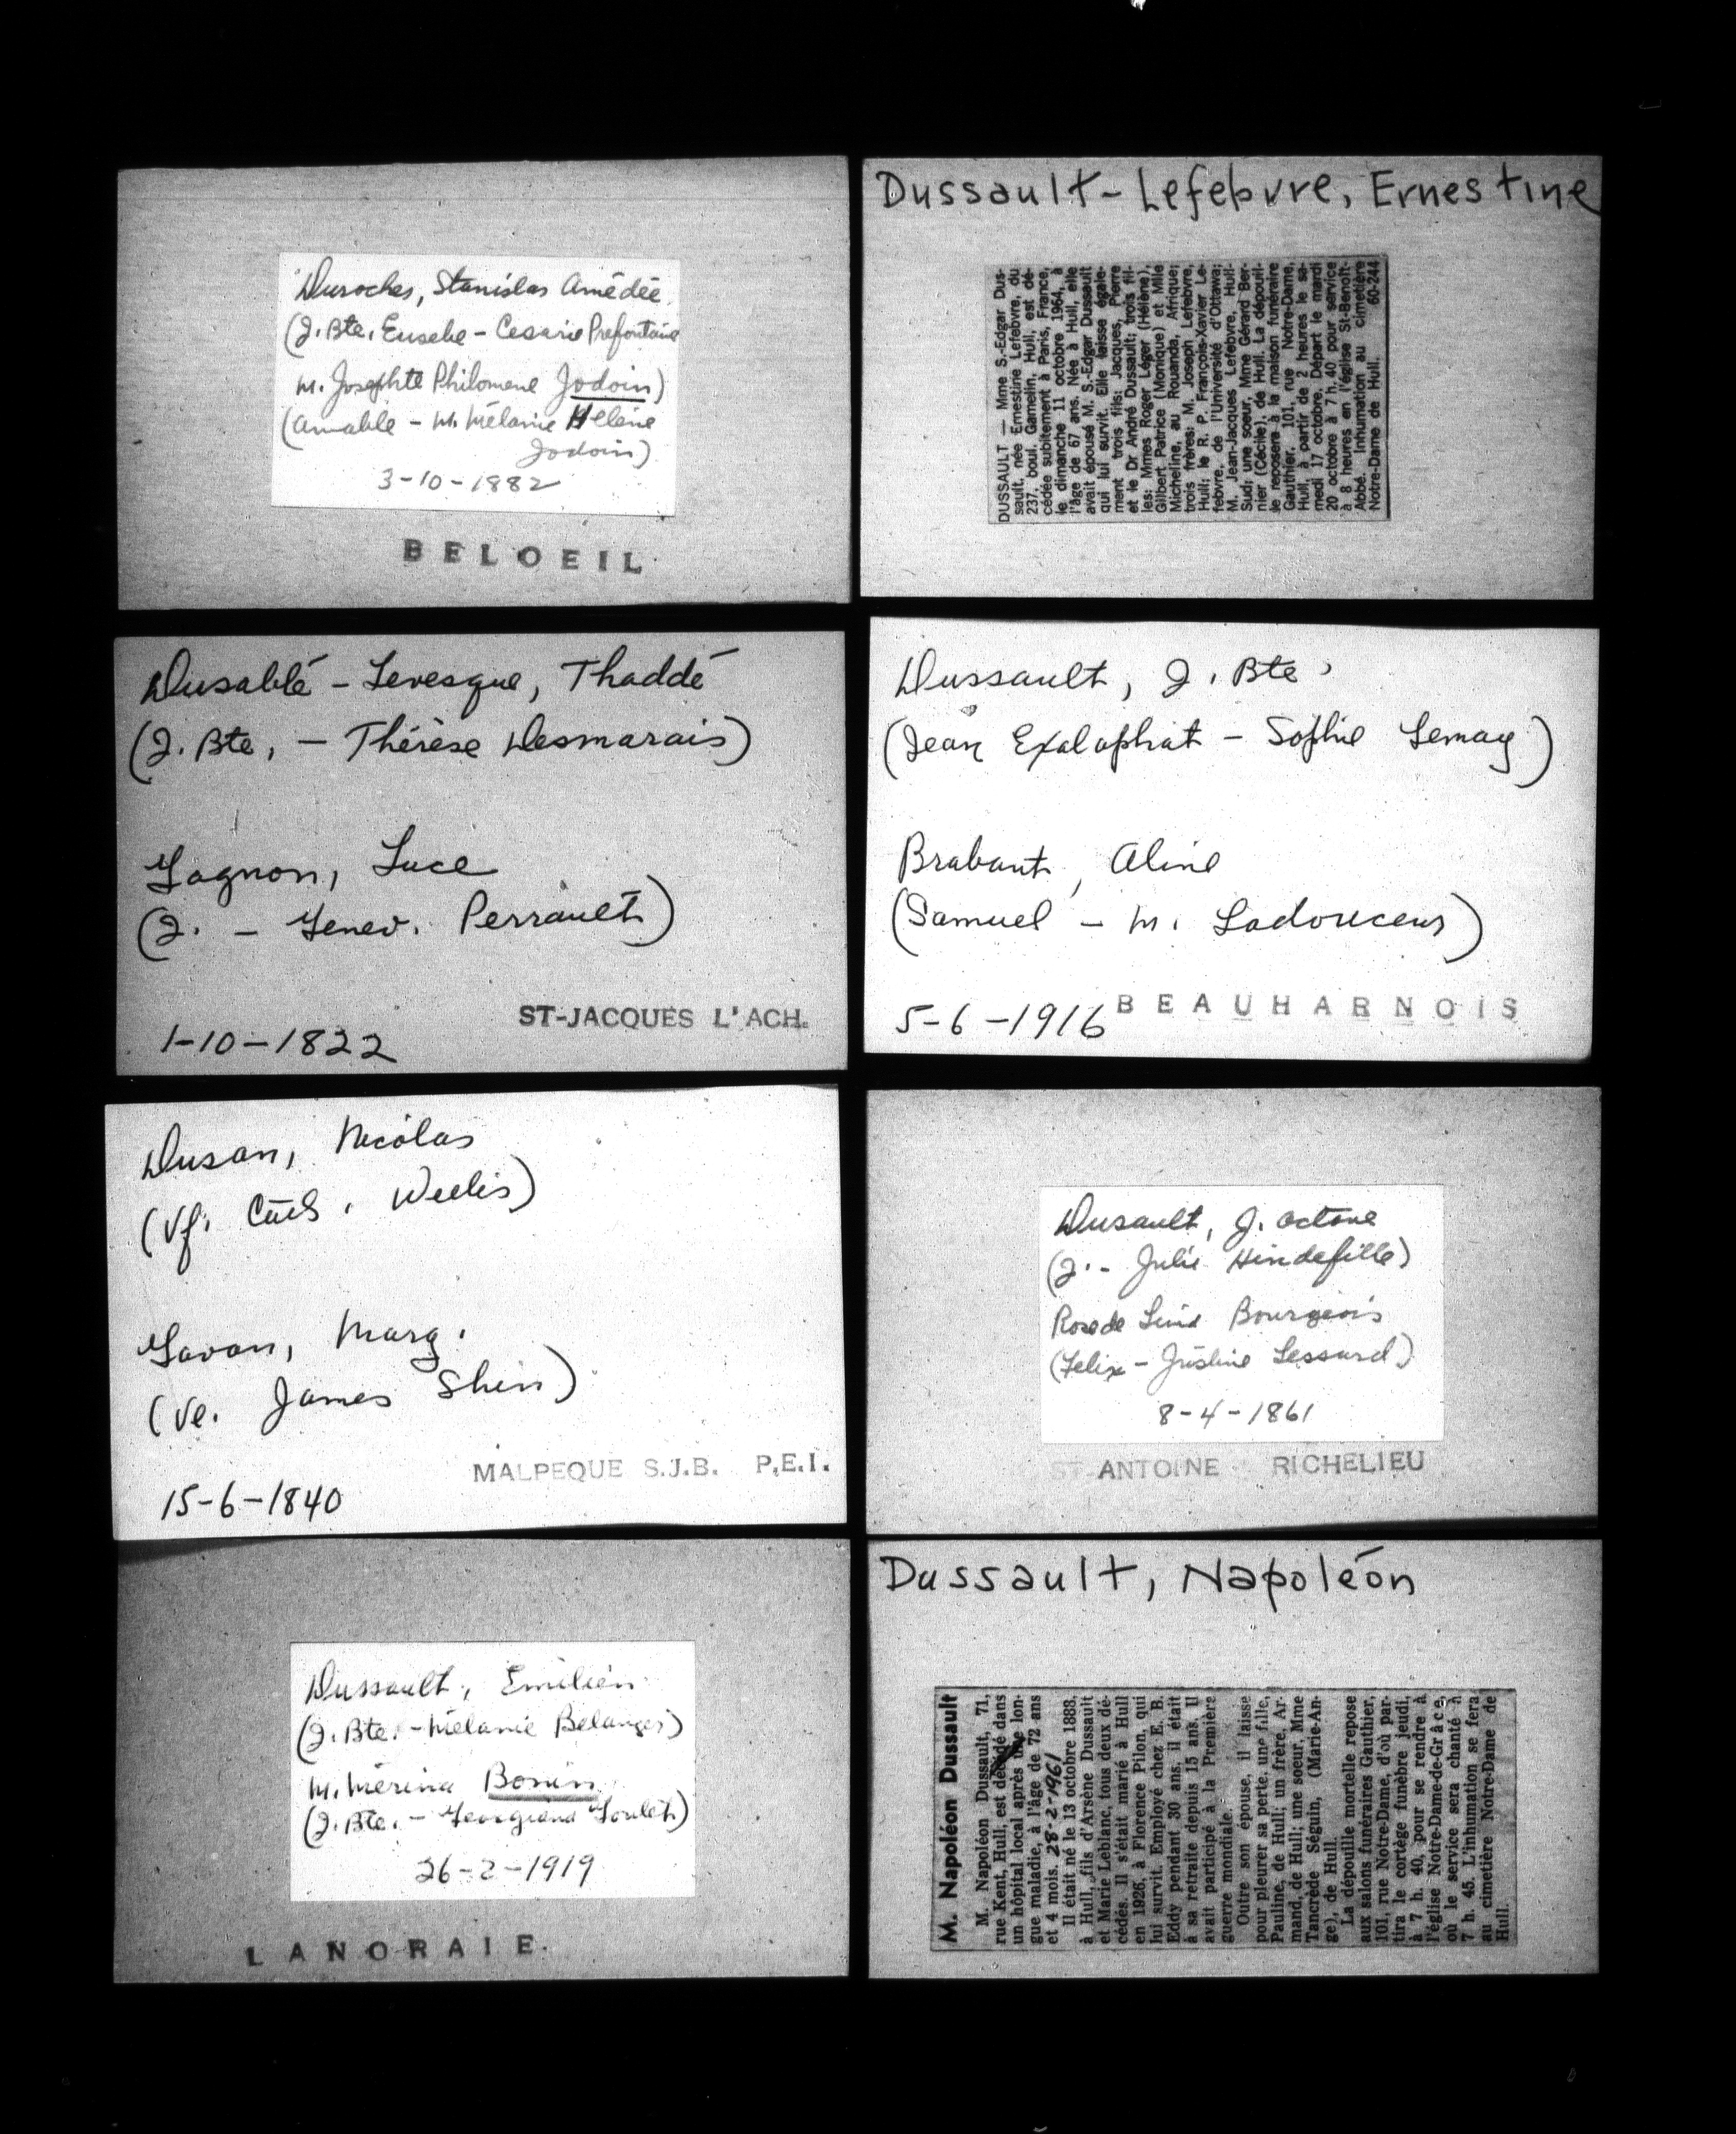 Durocher, Stanislas Amédée
(J. Bte, Eusebe - Cesarie Prefontaine
m. Josephte Philomene Jodoin)
(Amable - M. Mélanie Hélène
Jodoin)
3-10-1882
BELOEIL
Dusablé - Levesque, Thaddé
(J. Bte, - Thérèse Desmarais)
Gagnon, Luce
(J. - Genev. Perrault)
ST-JACQUES L'ACH.
1-10-1822
Dusan, Nicolas
(Vf. Cath. Welis)
Gavan, Marg.
(Ve. James Shin)
MALPEQUE S.J.B. P.E.I.
15-6-1840
Dussault, Emilien
(J. Bte. - Mélanie Belanger)
M. Merina Bonin
(J. Bte. - Georgiana Goulet)
26-2-1919
LANORAIE
Dussault-Lefebvre, Ernestine
DUSSAULT — Mme S.-Edgar Dus-
sault, née Ernestine Lefebvre, du
237, boul. Gamelin, Hull, est dé-
cédée subitement à Paris, France,
le dimanche 11 octobre 1964, à
l'âge de 67 ans. Née à Hull, elle
avait épousé M. S.-Edgar Dussault
qui lui survit. Elle laisse égale-
ment trois fils: Jacques, Pierre
et le Dr André Dussault; trois fil-
les: Mmes Roger Léger (Hélène),
Gilbert Patrice (Monique) et Mlle
Micheline, au Rouanda, Afrique;
trois frères: M. Joseph Lefebvre,
Hull; le R. P. François-Xavier Le-
febvre, de l'Université d'Ottawa;
M. Jean-Jacques Lefebvre, Hull-
Sud; une soeur, Mme Gérard Ber-
nier (Cécile), de Hull. La dépouil-
le reposera à la maison funéraire
Gauthier, 101, rue Notre-Dame,
Hull, à partir de 2 heures le sa-
medi 17 octobre. Départ le mardi
20 octobre à 7 h. 40 pour service
à 8 heures en l'église St-Benoît-
Abbé. Inhumation au cimetière
Notre-Dame de Hull. 60-244
Dussault, J. Bte
(Jean Exalaphat - Sophie Lemay)
Brabant, Aline
(Samuel - M. Ladouceur)
5-6-1916 BEAUHARNOIS
Dusault, J. Octave
(J. - Julie Hindefille)
Rose de Lima Bourgeois
(Felix - Justine Lessard)
8-4-1861
ST-ANTOINE RICHELIEU
Dussault, Napoléon
M. Napoléon Dussault
M. Napoléon Dussault, 71,
rue Kent, Hull, est décédé dans
un hôpital local après une lon-
gue maladie, à l'âge de 72 ans
et 4 mois. 28-2-1961
Il était né le 13 octobre 1888,
à Hull, fils d'Arsène Dussault
et Marie Leblanc, tous deux dé-
cédés. Il s'était marié à Hull
en 1926, à Florence Pilon, qui
lui survit. Employé chez E. B.
Eddy pendant 30 ans, il était
à sa retraite depuis 15 ans. Il
avait participé à la Première
guerre mondiale.
Outre son épouse, il laisse
pour pleurer sa perte, une fille,
Pauline, de Hull; un frère, Ar-
mand, de Hull; une soeur, Mme
Tancrède Séguin, (Marie-An-
ge), de Hull.
La dépouille mortelle repose
aux salons funéraires Gauthier,
101, rue Notre-Dame, d'où par-
tira le cortège funèbre jeudi,
à 7 h. 40, pour se rendre à
l'église Notre-Dame-de-Grâce,
où le service sera chanté à
7 h. 45. L'inhumation se fera
au cimetière Notre-Dame de
Hull.